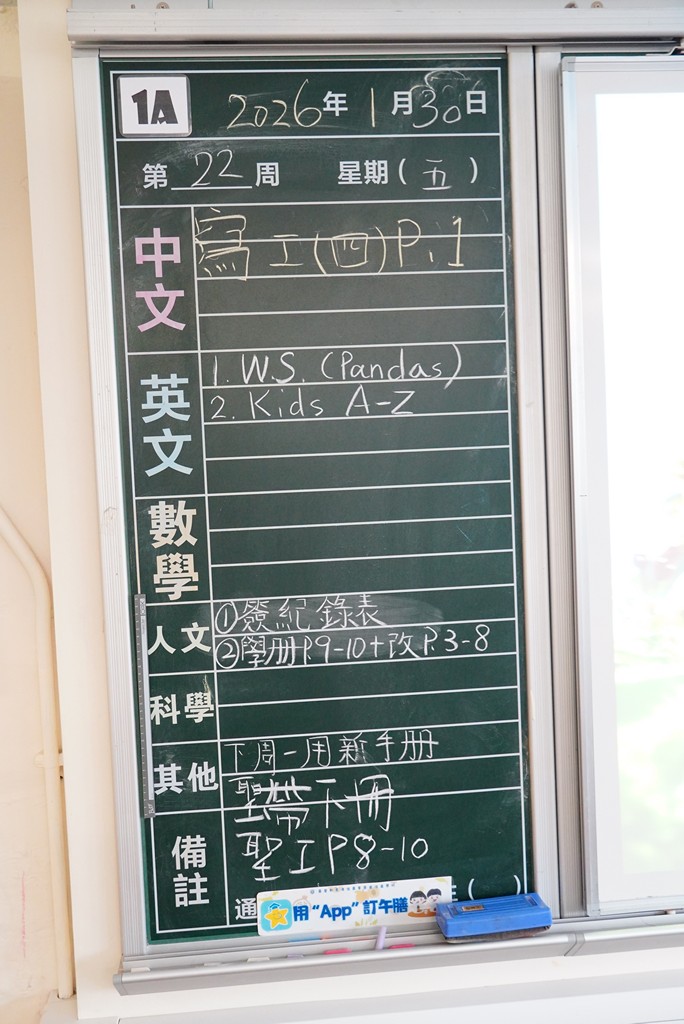 1A 2026年 1月30日
第 22 周 星期(五)
中文 寫工(四)P.1
英文 1. W.S. (Pandas)
2. Kids A-Z
數學
人文 ①簽紀錄表
②學册P.9-10+改P.3-8
科學
其他 下周一用新手册
聖帶下冊
備註 聖工P8-10
通
用 “App” 訂午膳
( )